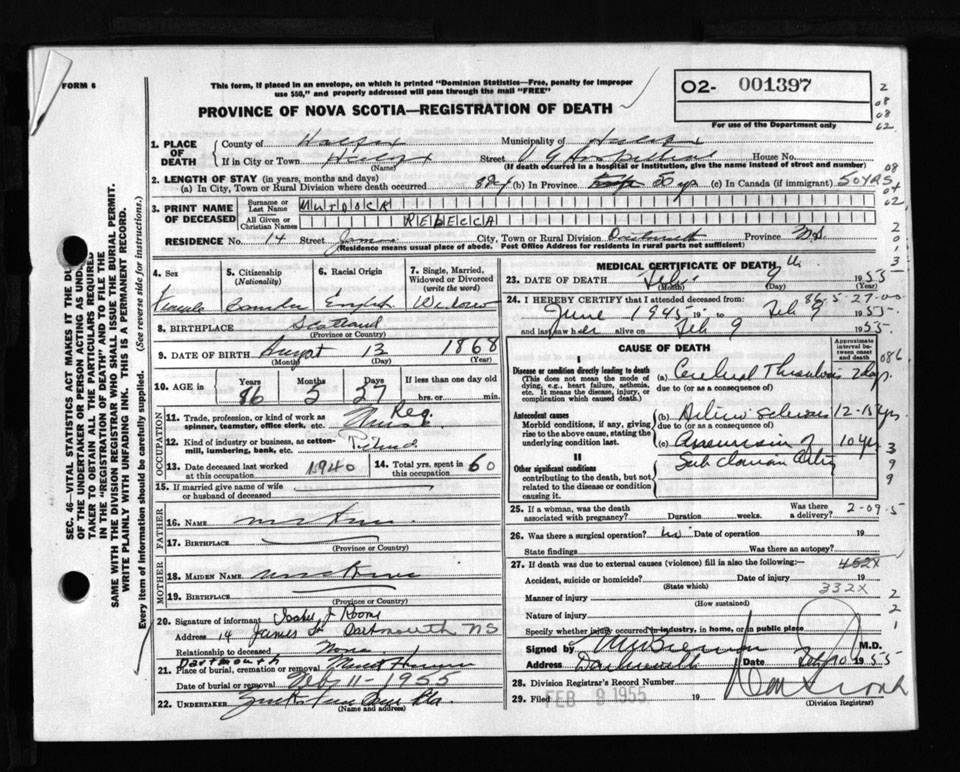 FORM 6
This form, if placed in an envelope, on which is printed "Dominion Statistics—Free, penalty for improper
use $50," and properly addressed will pass through the mail "FREE"
PROVINCE OF NOVA SCOTIA—REGISTRATION OF DEATH
O2- 001397
For use of the Department only
2
08
08
02
1. PLACE OF DEATH
County of Halifax Municipality of Halifax
If in City or Town Halifax Street V G Hospital House No.
(Name) (If death occurred in a hospital or institution, give the name instead of street and number)
2. LENGTH OF STAY (in years, months and days)
(a) In City, Town or Rural Division where death occurred (b) In Province 50 yrs (c) In Canada (if immigrant) 50 YRS
08
04
02
3. PRINT NAME OF DECEASED
Surname or Last Name MURDOCK
All Given or Christian Names REBECCA
RESIDENCE No. 14 Street James City, Town or Rural Division Dartmouth Province N.S.
(Residence means usual place of abode. Post Office Address for residents in rural parts not sufficient)
4. Sex Female
5. Citizenship (Nationality) Canadian
6. Racial Origin English
7. Single, Married, Widowed or Divorced (write the word) Widow
8. BIRTHPLACE Scotland
(Province or Country)
9. DATE OF BIRTH August 13 1868
(Month) (Day) (Year)
10. AGE in Years 86 Months 5 Days 27 If less than one day old
hrs. or min.
OCCUPATION
11. Trade, profession, or kind of work as spinner, teamster, office clerk, etc. Reg. Nurse
12. Kind of industry or business, as cotton-mill, lumbering, bank, etc.
13. Date deceased last worked at this occupation 1940 14. Total yrs. spent in this occupation 60
15. If married give name of wife or husband of deceased
FATHER
16. NAME
17. BIRTHPLACE
(Province or Country)
MOTHER
18. MAIDEN NAME
19. BIRTHPLACE
(Province or Country)
20. Signature of informant Isabel J Roome
Address 14 James St Dartmouth NS
Relationship to deceased None
21. Place of burial, cremation or removal Dartmouth Mount Hermon
Date of burial or removal Feby 11-1955
22. UNDERTAKER
(Name and address)
MEDICAL CERTIFICATE OF DEATH
23. DATE OF DEATH Feb. 9th 1955
(Month) (Day)
86-5-27-00
24. I HEREBY CERTIFY that I attended deceased from
June 1945 19 to Feb 9 1955
and last saw her alive on Feb 9 1955.
CAUSE OF DEATH
Approximate interval between onset and death
086
I
Disease or condition directly leading to death
(This does not mean the mode of dying, e.g., heart failure, asthenia, etc. It means the disease, injury, or complication which caused death.)
(a) Cerebral Thrombosis 2 days
due to (or as a consequence of)
Antecedent causes
Morbid conditions, if any, giving rise to the above cause, stating the underlying condition last.
(b) 12-15 yrs
due to (or as a consequence of)
(c) Aneurysm of 10 yrs
Sub clavian Artery
II
Other significant conditions
contributing to the death, but not related to the disease or condition causing it.
3
9
9
25. If a woman, was the death associated with pregnancy? Duration weeks. Was there a delivery? 2-09-5
26. Was there a surgical operation? no Date of operation 19
State findings Was there an autopsy?
27. If death was due to external causes (violence) fill in also the following: 452X
Accident, suicide or homicide? Date of injury 19
(State which) 332X
Manner of injury
(How sustained)
Nature of injury
Specify whether injury occurred in industry, in home, or in public place
2
2
1
Signed by M.D.
Address Dartmouth Date Feby 10 1955
28. Division Registrar's Record Number
29. Filed FEB 9 1955 19
(Division Registrar)
SEC. 46—VITAL STATISTICS ACT MAKES IT THE DU
OF THE UNDERTAKER OR PERSON ACTING AS UND
TAKER TO OBTAIN ALL THE PARTICULARS REQUIRED
IN THE "REGISTRATION OF DEATH" AND TO FILE THE
SAME WITH THE DIVISION REGISTRAR WHO SHALL ISSUE THE BURIAL PERMIT.
WRITE PLAINLY WITH UNFADING INK. THIS IS A PERMANENT RECORD.
Every item of information should be carefully supplied. (See reverse side for instructions.)